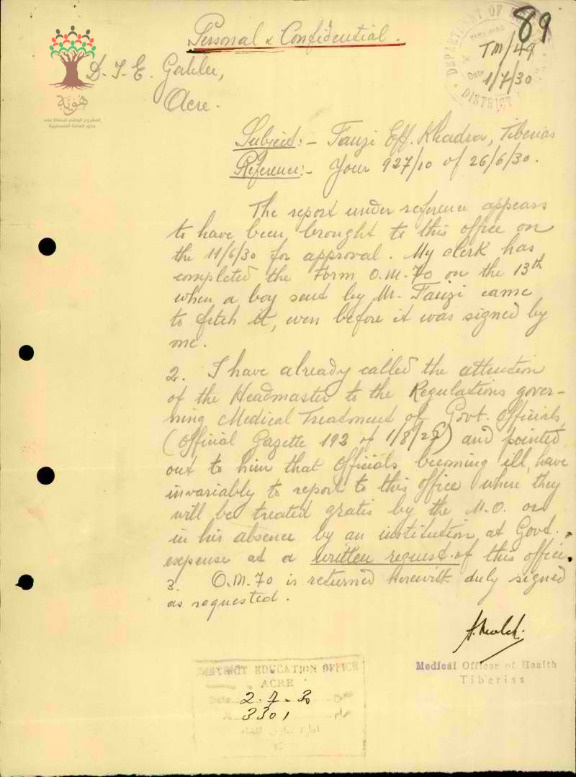 89
Personal & Confidential.
DEPARTMENT OF
TM/49
Date 1/7/30
DISTRICT
D. I. E. Galilee,
Acre.
هوية
Subject:- Fauzi Eff. Khadra, Tiberias
Reference:- Your 927/10 of 26/6/30.
The report under reference appears
to have been brought to this office on
the 11/6/30 for approval. My clerk has
completed the Form O.M. 70 on the 13th
when a boy sent by Mr. Fauzi came
to fetch it, even before it was signed by
me.
2. I have already called the attention
of the Headmaster to the Regulations gover-
ning Medical Treatment of Govt. Officials
(Official Gazette 192 of 1/8/27) and pointed
out to him that Officials becoming ill, have
invariably to report to this office where they
will be treated gratis by the M.O. or
in his absence by an institution at Govt.
expense at a written request of this office.
3. O.M. 70 is returned herewith duly signed
as requested.
Medical Officer of Health
Tiberias
DISTRICT EDUCATION OFFICE
ACRE
Date 2-7-30
3301